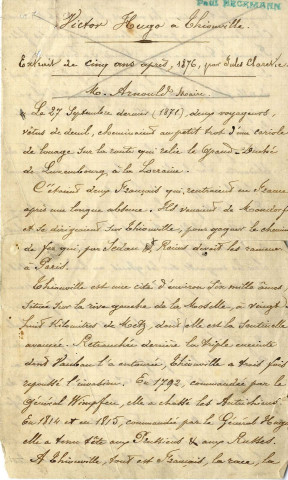 Paul HECKMANN
Victor Hugo à Thionville.
Extrait de cinq ans après, 1876, par Jules Claretie.
M. Arnould, maire.
Le 27 Septembre dernier (1871), deux voyageurs,
vêtus de deuil, cheminaient au petit trot d'un cariole
de louage sur la route qui relie le Grand-Duché
de Luxembourg, à la Lorraine.
C'étaient deux Français qui rentraient en France
après une longue absence. Ils venaient de Mondorf
et se dirigeaient sur Thionville, pour gagner le chemin
de fer qui, par Sedan & Reims devait les ramener
à Paris.
Thionville est une cité d'environ six mille âmes,
située sur la rive gauche de la Moselle, à vingt-
huit kilomètres de Metz, dont elle est la sentinelle
avancée. Retranchée derrière la triple enceinte
dont Vauban l'a entourée, Thionville a trois fois
repoussé l'invasion. En 1792, commandée par le
Général Wimpfen, elle a chassé les Autrichiens.
En 1814 et en 1815, commandée par le Général Hugo,
elle a tenu tête aux Prussiens & aux Russes.
A Thionville, tout est Français, la race, la